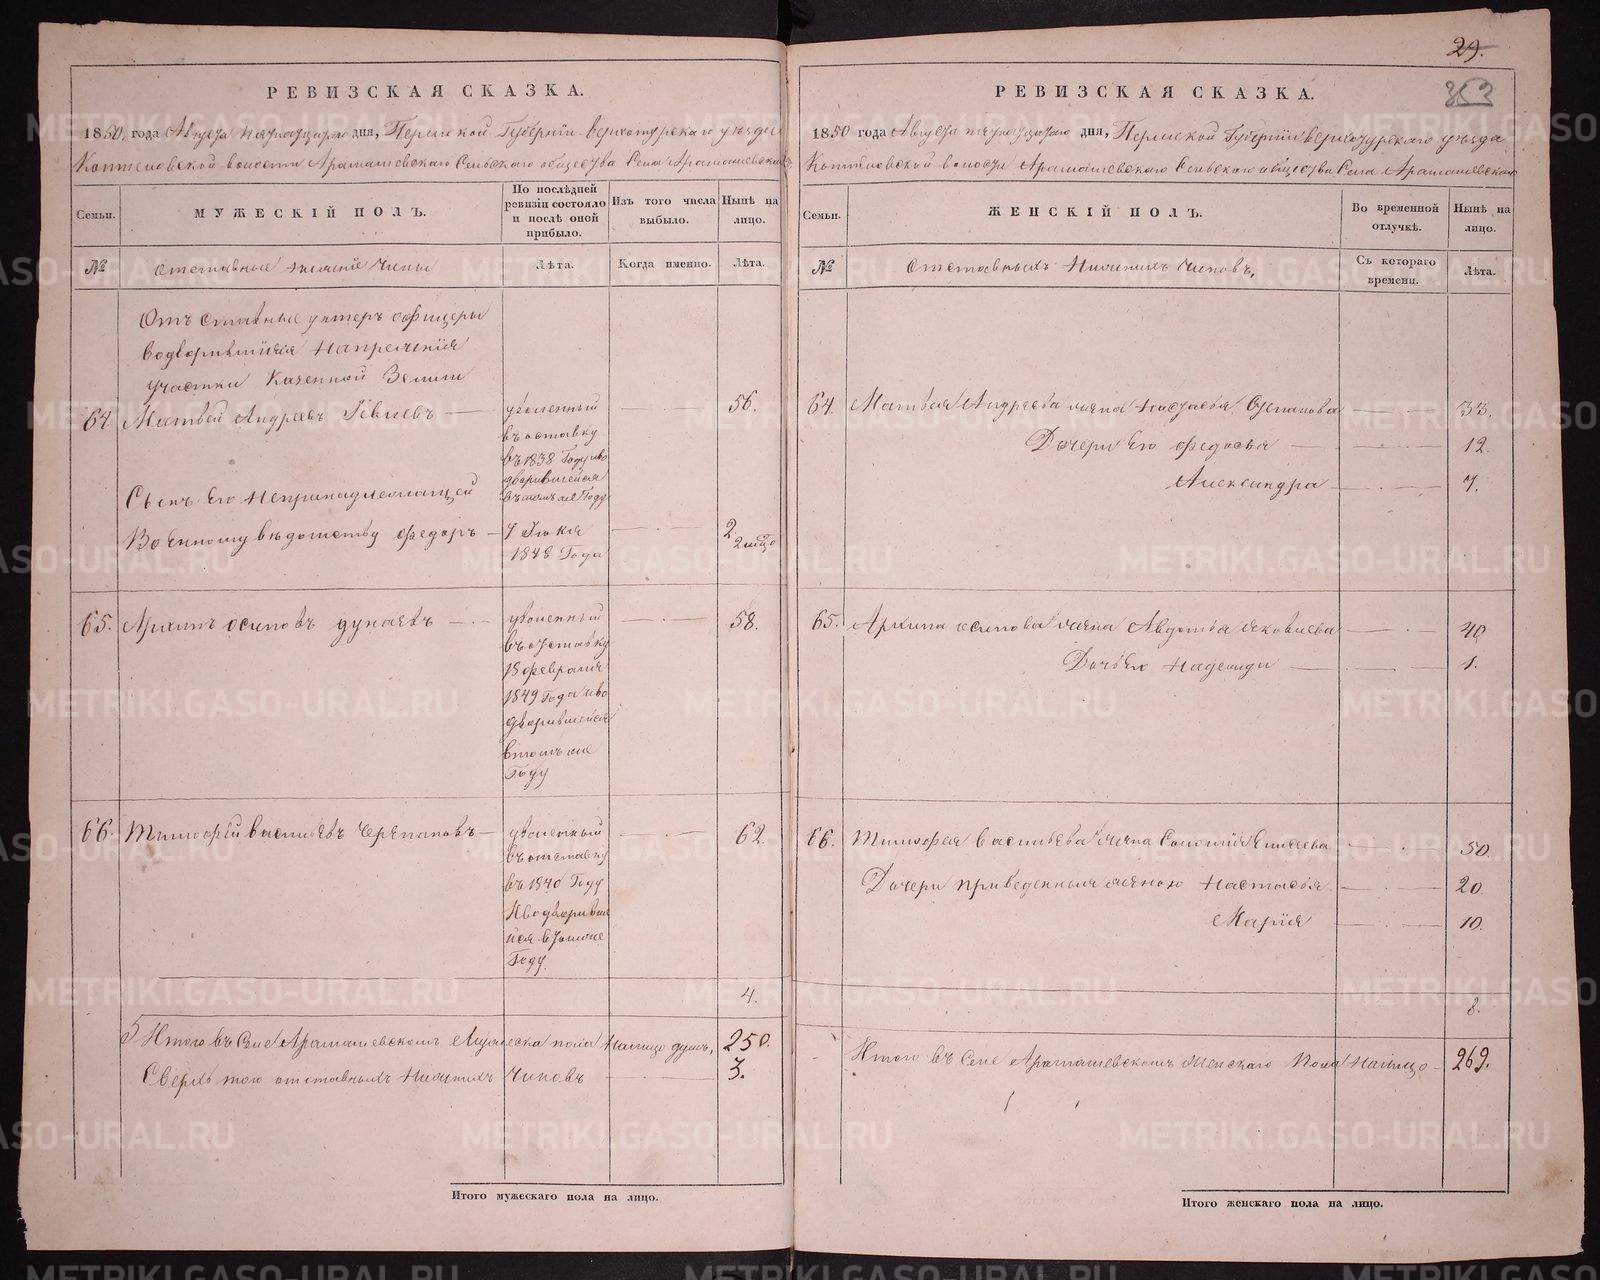 РЕВИЗСКАЯ СКАЗКА.
1850 года Августа пятнадцатаго дня, Пермской Губернiи верхотурскаго уѣзда
Коптеловской волости Арамашевскаго Сельскаго общества Села Арамашевскаго
Семьи.
МУЖЕСКІЙ ПОЛЪ.
По послѣдней ревизіи состояло и послѣ оной прибыло.
Изъ того числа выбыло.
Нынѣ на лицо.
№
отставные нижнiе чины
Лѣта.
Когда именно.
Лѣта.
Отъ ставные унтеръ офицеры
водворившiяся
участки Казенной Земли
64. Матвей Андреевъ — 56.
уволенный
въ отставку
въ 1838 Году иво
дворившейся
въ томъ же Году
Сынъ Его Непринадлежащей
Военному вѣдомству федоръ — 7 Июня 2
1848 Года
65. Архипъ осиповъ дунаевъ — 58.
уволенный
въ отставку
18 февраля
1849 Года иво
дворившейся
втомъ же
Году
66. Тимофей васильевъ Черепановъ — 62.
уволенный
въ отставку
въ 1840 Году
Иводворивш
ійся втомже
Году
4.
Итого въ Селе Арамашевскомъ Мужеска пола налицо душъ, 250.
Сверхъ того отставныхъ Нижнихъ Чиновъ 3.
Итого мужескаго пола на лицо.
29.
353
РЕВИЗСКАЯ СКАЗКА.
1850 года Августа пятнадцатаго дня, Пермской Губернiи верхотурскаго уѣзда
Коптеловской волости Арамашевскаго Сельскаго общества Села Арамашевскаго
Семьи.
ЖЕНСКІЙ ПОЛЪ.
Во временной отлучкѣ.
Нынѣ на лицо.
№
отставныхъ Нижнихъ чиновъ,
Съ котораго времени.
Лѣта.
64. Матвея Андреева жена Настасья Степанова 33.
Дочери Его федосья 12.
Александра 7.
65. Архипа осипова жена Авдотья яковлева 40
Дочь Его Надежда 1.
66. Тимофея васильева жена Соломия Елисеева 50.
Дочери приведенныя женою Настасья 20
Марiя 10.
8.
Итого въ Селе Арамашевскомъ Женскаго Пола Налицо 269.
Итого женскаго пола на лицо.
METRIKI.GASO-URAL.RU